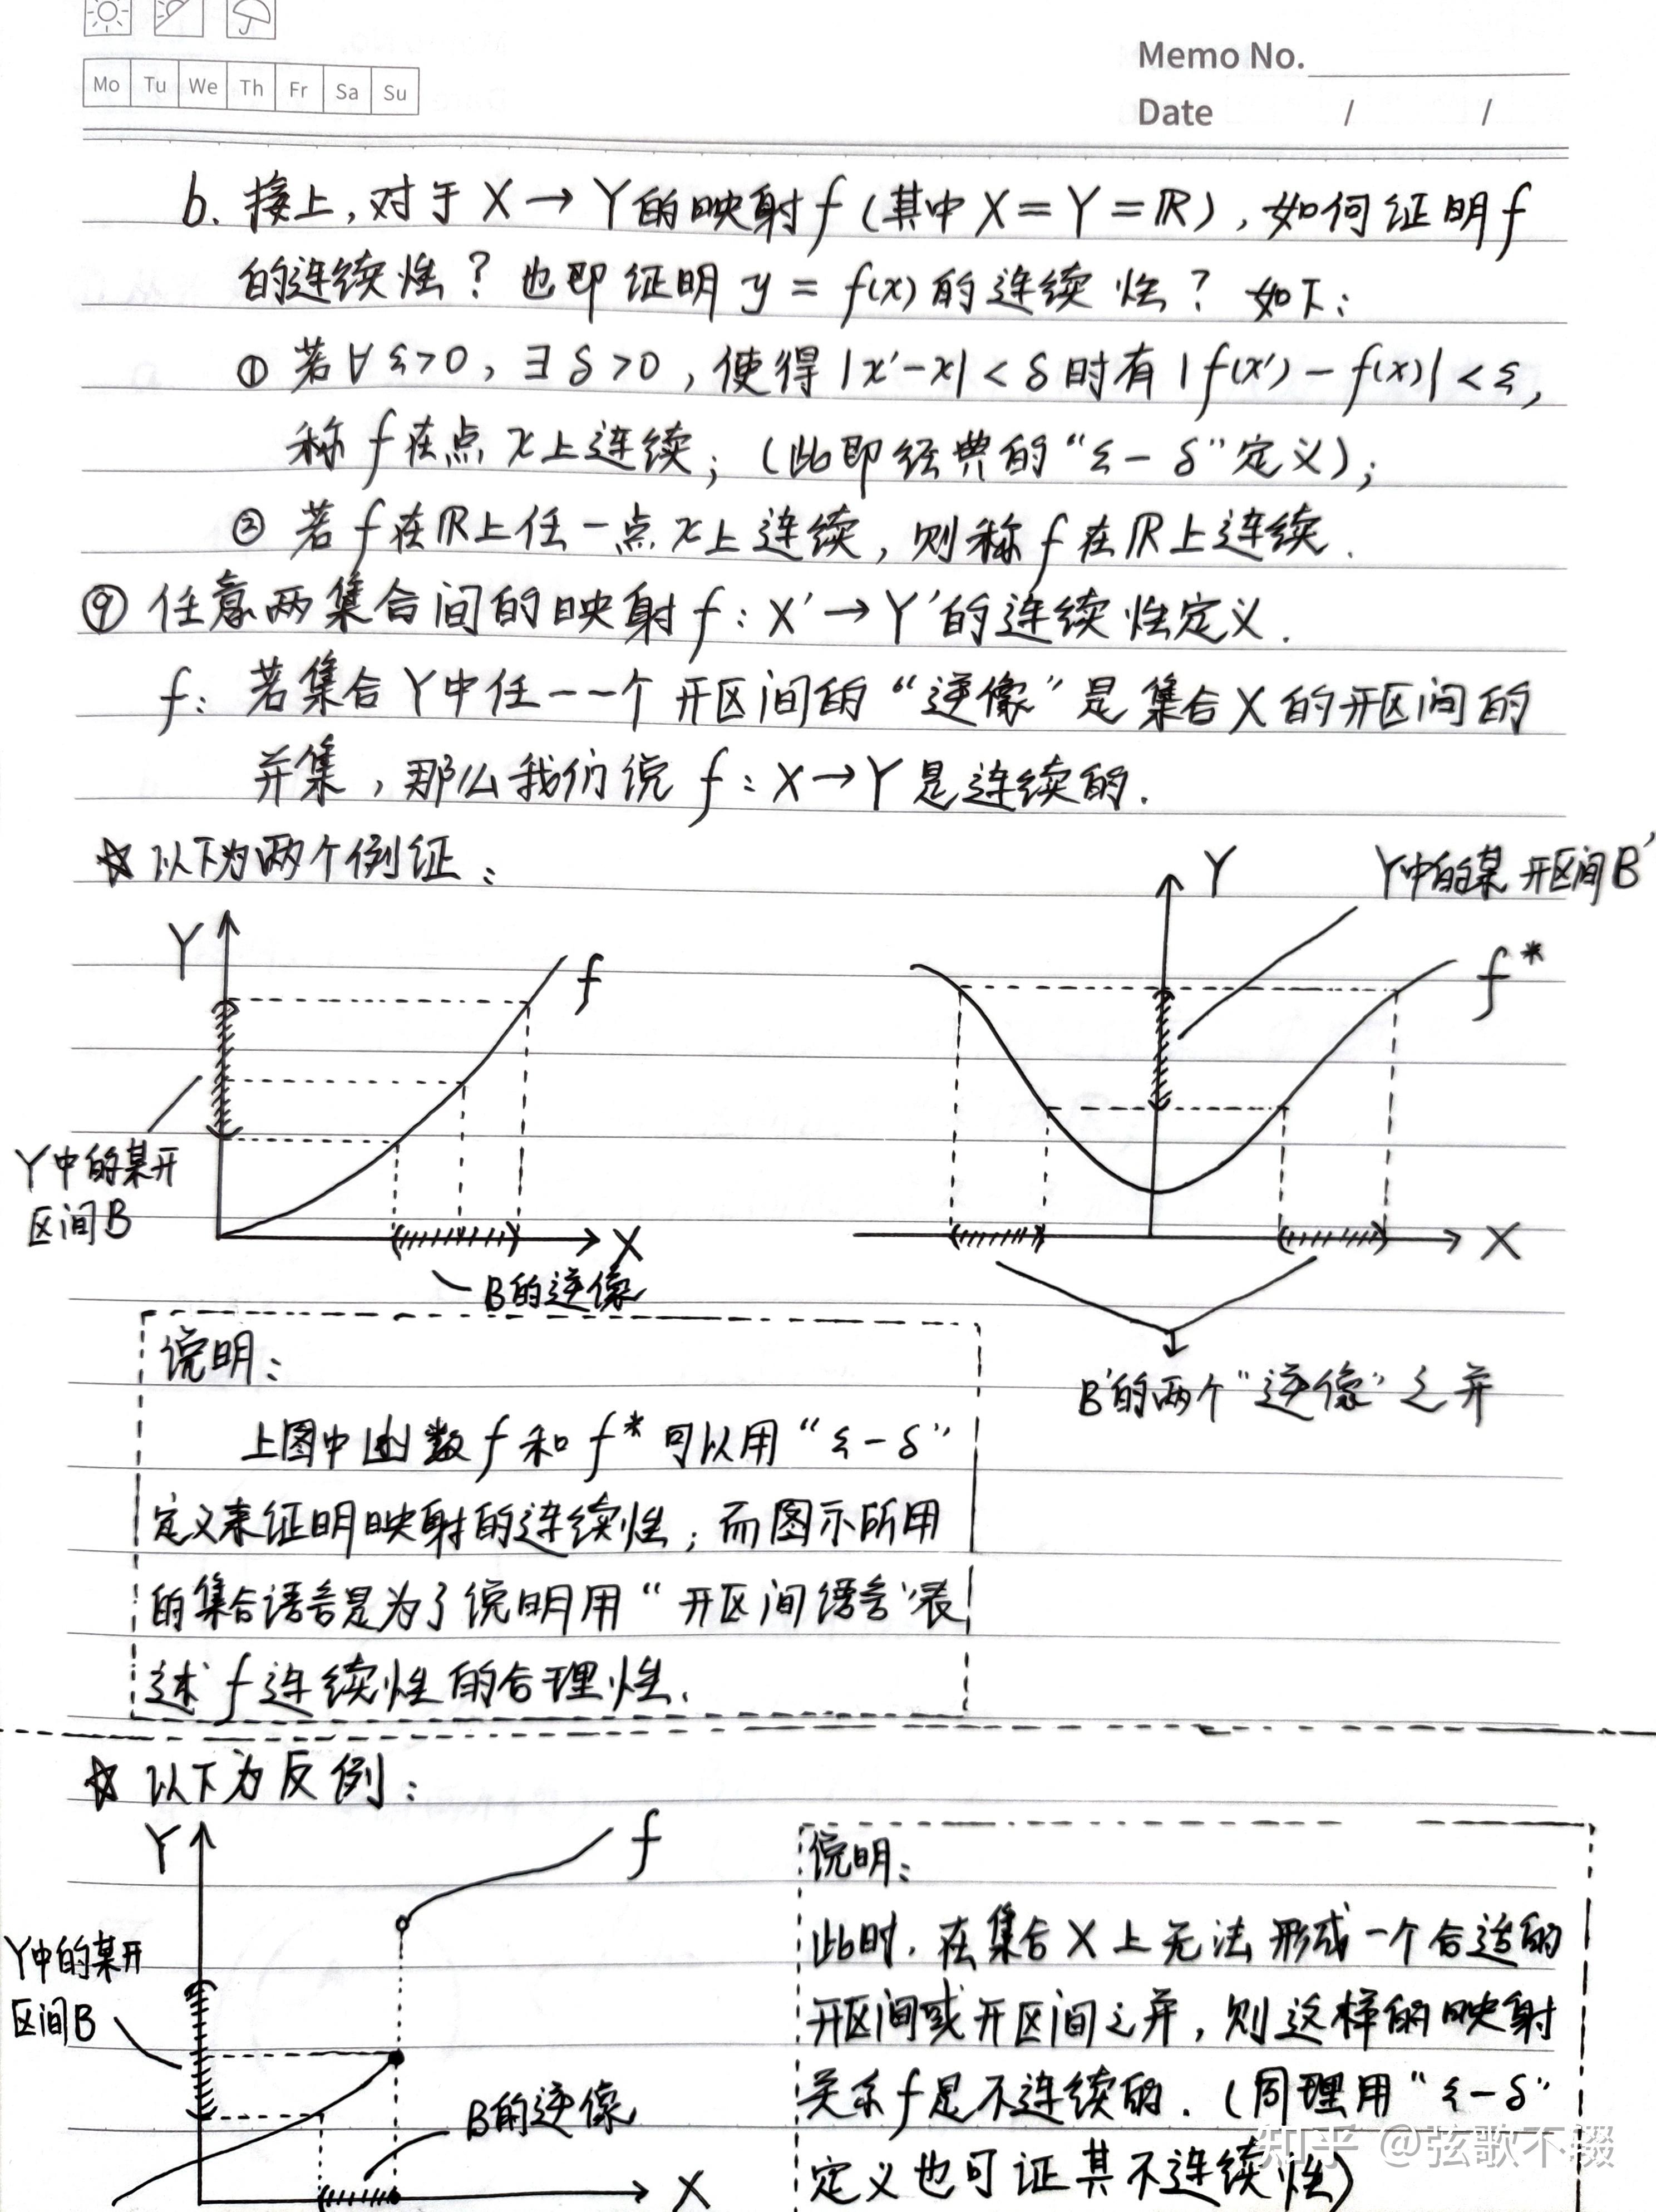 Memo No.
Mo Tu We Th Fr Sa Su
Date / /
b. 接上,对于 X → Y 的映射 f (其中 X = Y = ℝ),如何证明 f
的连续性?也即证明 y = f(x) 的连续性?如下:
① 若 ∀ ε>0, ∃ δ>0, 使得 |x'-x| < δ 时有 |f(x') - f(x)| < ε,
称 f 在点 x 上连续;(此即经典的“ε-δ”定义);
② 若 f 在 ℝ 上任一点 x 上连续,则称 f 在 ℝ 上连续.
⑨ 任意两集合间的映射 f: X' → Y' 的连续性定义.
f: 若集合 Y 中任一一个开区间的“逆像”是集合 X 的开区间的
并集,那么我们说 f: X → Y 是连续的.
☆ 以下为两个例证:
Y
f
Y中的某开
区间B
X
B的逆像
Y
Y中的某开区间B'
f*
X
B'的两个“逆像”之并
说明:
上图中函数 f 和 f* 可以用“ε-δ”
定义来证明映射的连续性;而图示所用
的集合语言是为了说明用“开区间语言”表
述 f 连续性的合理性.
☆ 以下为反例:
Y
f
Y中的某开
区间B
B的逆像
X
说明:
此时,在集合 X 上无法形成一个合适的
开区间或开区间之并,则这样的映射
关系 f 是不连续的.(同理用“ε-δ”
定义也可证其不连续性)
知乎 @弦歌不辍